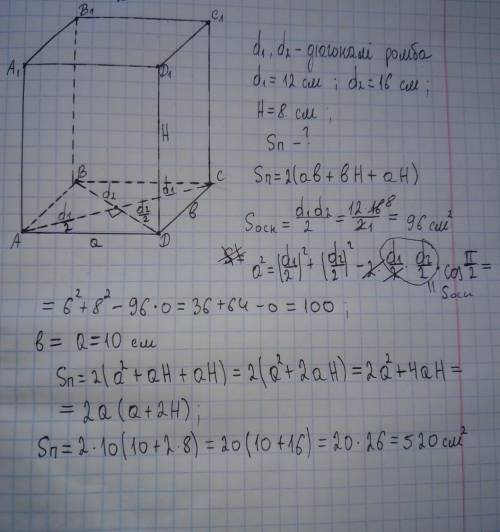 B₁
C₁
A₁
D₁
H
B
C
d₂
d₁
d₁/2
d₂/2
в
A
a
D
d₁, d₂ - діагоналі ромба
d₁ = 12 см ; d₂ = 16 см ;
H = 8 см ;
Sп - ?
Sп = 2(aв + вH + aH)
Sосн = d₁d₂/2 = 12·16⁸/2₁ = 96 см²
a² = (d₁/2)² + (d₂/2)² - 2 · d₁/2 · d₂/2 · cos π/2 =
Sосн
= 6² + 8² - 96 · 0 = 36 + 64 - 0 = 100 ;
в = a = 10 см
Sп = 2(a² + aH + aH) = 2(a² + 2aH) = 2a² + 4aH =
= 2a(a + 2H) ;
Sп = 2 · 10(10 + 2 · 8) = 20(10 + 16) = 20 · 26 = 520 см²